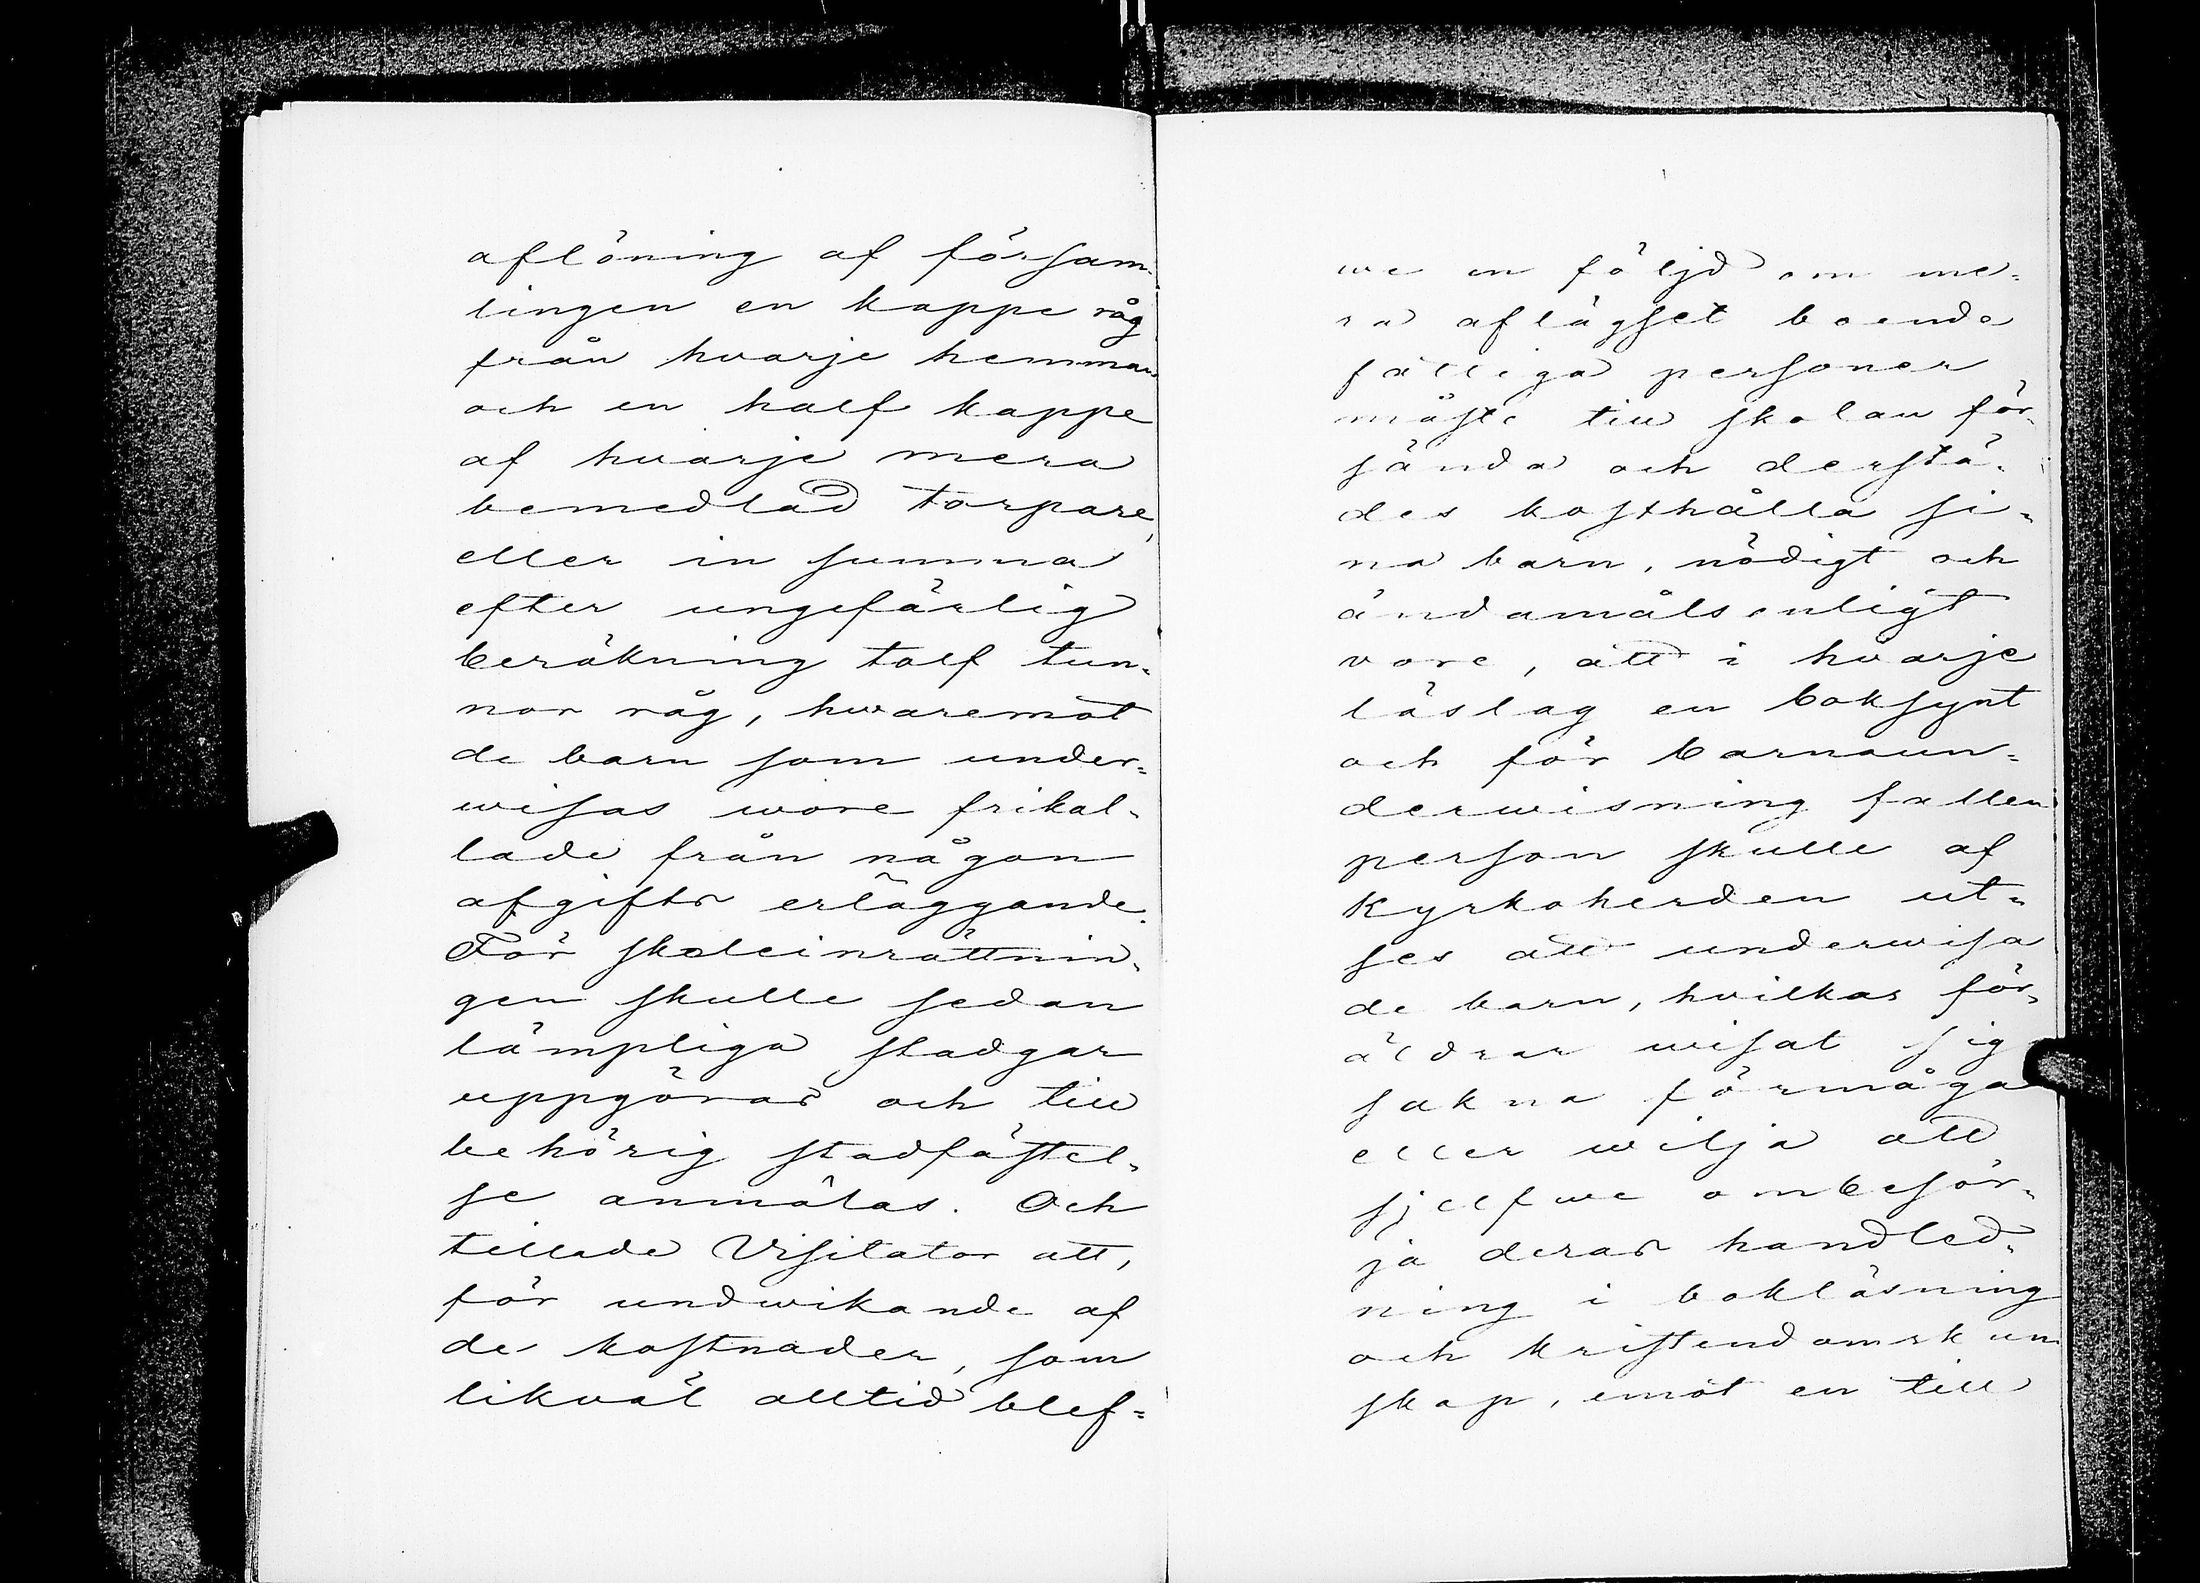 aflöning af försam-
lingen en kappe råg
från hvarje hemman
och en half kappe
af hvarje mera
bemedlad torpare,
eller in summa
efter ungefärlig
beräkning tolf tun-
nor råg, hwaremot
de barn som under-
wisas wore frikal-
lade från någon
afgifts erläggande.
För skoleinrättnin-
gen skulle sedan
lämpliga stadgar
uppgöras och till
behörig stadfästel-
se anmälas. Och
tillade Visitator att,
för undwikande af
de kostnader, som
likväl alltid blef-
we en följd om me-
ra aflägset boende
fattiga personer
måste till skolan för-
sända och derstä-
des kosthålla si-
na barn, nödigt och
ändamålsenligt
vore, att i hvarje
läslag en boksynt
och för barnaun-
derwisning fallen
person skulle af
Kyrkoherden ut-
ses att underwisa
de barn, hvilkas för-
äldrar wisat sig
sakna förmåga
eller wilja att
sjelfwe ombesör-
ja deras handled-
ning i bokläsning
och kristendomskun
skap, emot en till